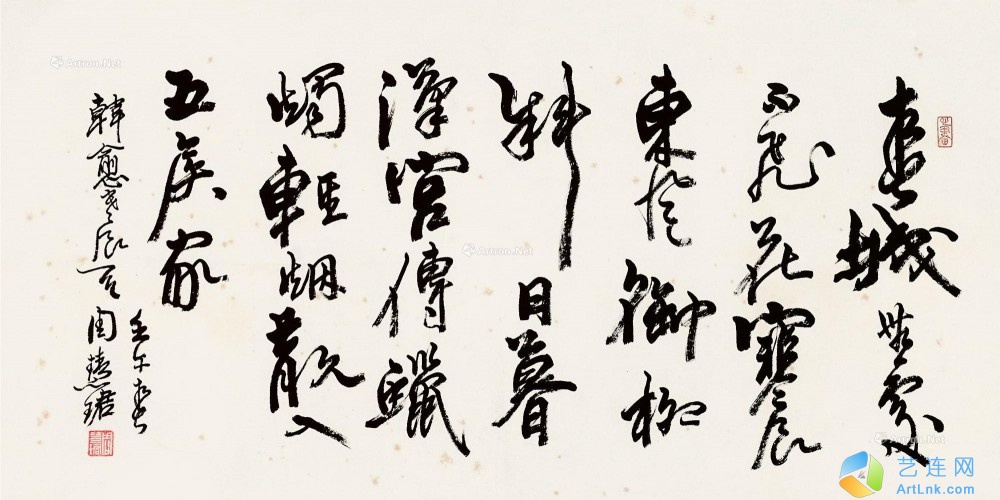 春城無處
不飛花寒食
東風御柳
斜日暮
漢宮傳蠟
燭輕烟散入
五侯家
韓愈寒食
壬午春
周慧珺
Artron.Net
Artron.Net
Artron.Net
艺连网
ArtLnk.com